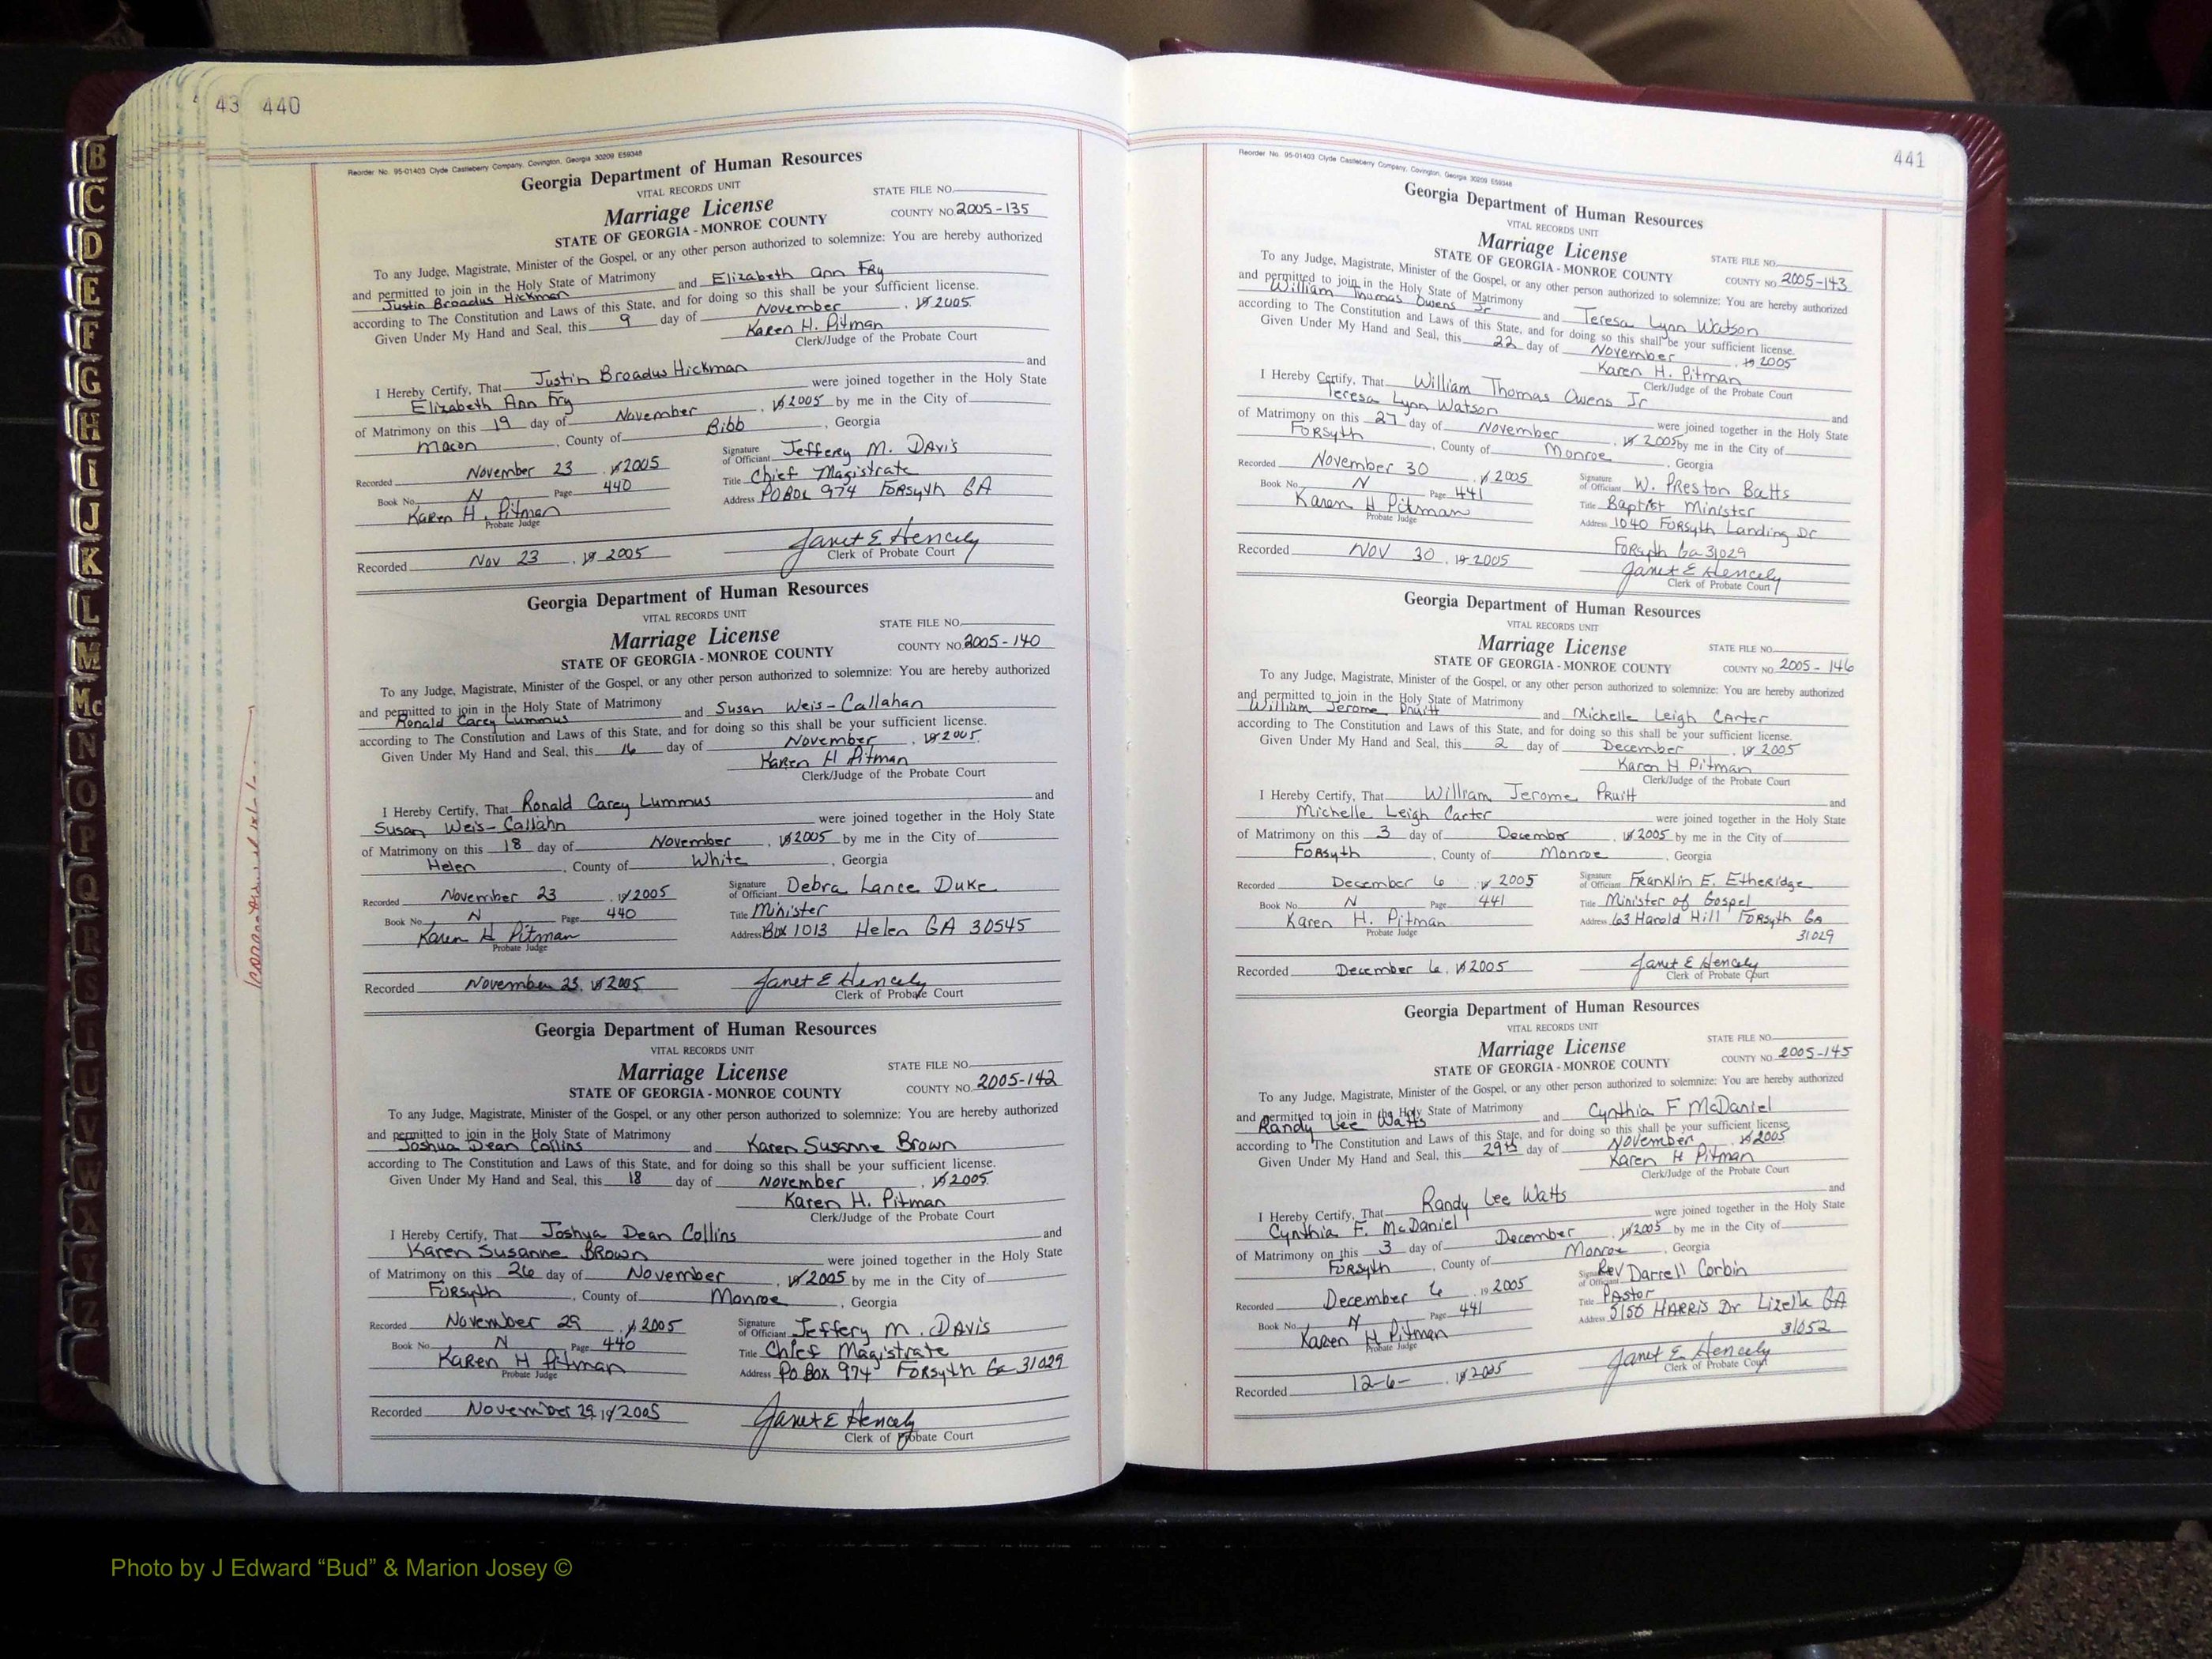 43 440
Reorder No. 95-01403 Clyde Castleberry Company, Covington, Georgia 30209 E59348
Georgia Department of Human Resources
VITAL RECORDS UNIT
STATE FILE NO.
Marriage License
COUNTY NO. 2005-135
STATE OF GEORGIA - MONROE COUNTY
To any Judge, Magistrate, Minister of the Gospel, or any other person authorized to solemnize: You are hereby authorized
and permitted to join in the Holy State of Matrimony
Justin Broadus Hickman and Elizabeth Ann Fry
according to The Constitution and Laws of this State, and for doing so this shall be your sufficient license.
Given Under My Hand and Seal, this 9 day of November, 19 2005
Karen H. Pitman
Clerk/Judge of the Probate Court
I Hereby Certify, That Justin Broadus Hickman and
Elizabeth Ann Fry were joined together in the Holy State
of Matrimony on this 19 day of November, 19 2005 by me in the City of
Macon, County of Bibb, Georgia
Recorded November 23, 19 2005 Signature of Officiant Jeffery M. Davis
Book No. N Page 440 Title Chief Magistrate
Karen H. Pitman Address PO BOX 974 Forsyth GA
Probate Judge
Recorded Nov 23, 19 2005 Janet E Hencely
Clerk of Probate Court
Georgia Department of Human Resources
VITAL RECORDS UNIT
STATE FILE NO.
Marriage License
COUNTY NO. 2005-140
STATE OF GEORGIA - MONROE COUNTY
To any Judge, Magistrate, Minister of the Gospel, or any other person authorized to solemnize: You are hereby authorized
and permitted to join in the Holy State of Matrimony
Ronald Carey Lummus and Susan Weis-Callahan
according to The Constitution and Laws of this State, and for doing so this shall be your sufficient license.
Given Under My Hand and Seal, this 16 day of November, 19 2005
Karen H Pitman
Clerk/Judge of the Probate Court
I Hereby Certify, That Ronald Carey Lummus and
Susan Weis-Callahn were joined together in the Holy State
of Matrimony on this 18 day of November, 19 2005 by me in the City of
Helen, County of White, Georgia
Recorded November 23, 19 2005 Signature of Officiant Debra Lance Duke
Book No. N Page 440 Title Minister
Karen H Pitman Address Box 1013 Helen GA 30545
Probate Judge
Recorded November 23, 19 2005 Janet E Hencely
Clerk of Probate Court
Georgia Department of Human Resources
VITAL RECORDS UNIT
STATE FILE NO.
Marriage License
COUNTY NO. 2005-142
STATE OF GEORGIA - MONROE COUNTY
To any Judge, Magistrate, Minister of the Gospel, or any other person authorized to solemnize: You are hereby authorized
and permitted to join in the Holy State of Matrimony
Joshua Dean Collins and Karen Susanne Brown
according to The Constitution and Laws of this State, and for doing so this shall be your sufficient license.
Given Under My Hand and Seal, this 18 day of November, 19 2005
Karen H. Pitman
Clerk/Judge of the Probate Court
I Hereby Certify, That Joshua Dean Collins and
Karen Susanne Brown were joined together in the Holy State
of Matrimony on this 26 day of November, 19 2005 by me in the City of
Forsyth, County of Monroe, Georgia
Recorded November 29, 19 2005 Signature of Officiant Jeffery M. Davis
Book No. N Page 440 Title Chief Magistrate
Karen H Pitman Address PO Box 974 Forsyth Ga 31029
Probate Judge
Recorded November 29, 19 2005 Janet E Hencely
Clerk of Probate Court
441
Reorder No. 95-01403 Clyde Castleberry Company, Covington, Georgia 30209 E59348
Georgia Department of Human Resources
VITAL RECORDS UNIT
Marriage License
STATE FILE NO.
STATE OF GEORGIA - MONROE COUNTY
COUNTY NO. 2005-143
To any Judge, Magistrate, Minister of the Gospel, or any other person authorized to solemnize: You are hereby authorized
and permitted to join in the Holy State of Matrimony
William Thomas Owens Jr and Teresa Lynn Watson
according to The Constitution and Laws of this State, and for doing so this shall be your sufficient license.
Given Under My Hand and Seal, this 22 day of November, 19 2005
Karen H. Pitman
Clerk/Judge of the Probate Court
I Hereby Certify, That William Thomas Owens Jr and
Teresa Lynn Watson were joined together in the Holy State
of Matrimony on this 27 day of November, 19 2005 by me in the City of
Forsyth, County of Monroe, Georgia
Recorded November 30, 19 2005 Signature of Officiant W. Preston Batts
Book No. N Page 441 Title Baptist Minister
Karen H Pitman Address 1040 Forsyth Landing Dr
Probate Judge
Forsyth Ga 31029
Recorded Nov 30, 19 2005 Janet E Hencely
Clerk of Probate Court
Georgia Department of Human Resources
VITAL RECORDS UNIT
Marriage License
STATE FILE NO.
STATE OF GEORGIA - MONROE COUNTY
COUNTY NO. 2005-146
To any Judge, Magistrate, Minister of the Gospel, or any other person authorized to solemnize: You are hereby authorized
and permitted to join in the Holy State of Matrimony
William Jerome Pruitt and Michelle Leigh Carter
according to The Constitution and Laws of this State, and for doing so this shall be your sufficient license.
Given Under My Hand and Seal, this 2 day of December, 19 2005
Karen H Pitman
Clerk/Judge of the Probate Court
I Hereby Certify, That William Jerome Pruitt and
Michelle Leigh Carter were joined together in the Holy State
of Matrimony on this 3 day of December, 19 2005 by me in the City of
Forsyth, County of Monroe, Georgia
Recorded December 6, 19 2005 Signature of Officiant Franklin E. Etheridge
Book No. N Page 441 Title Minister of Gospel
Karen H. Pitman Address 63 Harold Hill Forsyth GA
Probate Judge
31029
Recorded December 6, 19 2005 Janet E Hencely
Clerk of Probate Court
Georgia Department of Human Resources
VITAL RECORDS UNIT
Marriage License
STATE FILE NO.
STATE OF GEORGIA - MONROE COUNTY
COUNTY NO. 2005-145
To any Judge, Magistrate, Minister of the Gospel, or any other person authorized to solemnize: You are hereby authorized
and permitted to join in the Holy State of Matrimony
Randy Lee Watts and Cynthia F McDaniel
according to The Constitution and Laws of this State, and for doing so this shall be your sufficient license.
Given Under My Hand and Seal, this 29th day of November, 19 2005
Karen H Pitman
Clerk/Judge of the Probate Court
I Hereby Certify, That Randy Lee Watts and
Cynthia F. McDaniel were joined together in the Holy State
of Matrimony on this 3 day of December, 19 2005 by me in the City of
Forsyth, County of Monroe, Georgia
Recorded December 6, 19 2005 Signature of Officiant Rev Darrell Corbin
Book No. N Page 441 Title Pastor
Karen H Pitman Address Harris Dr Lizella GA
Probate Judge
31052
Recorded 12-6-, 19 2005 Janet E Hencely
Clerk of Probate Court
B
C
D
E
F
G
H
I
J
K
L
M
Mc
N
O
P
Q
R
S
T
U
V
W
X
Y
Z
Photo by J Edward “Bud” & Marion Josey ©